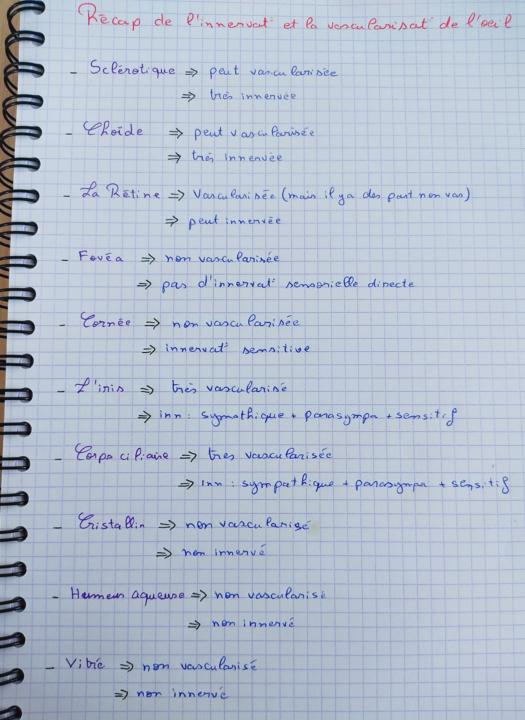 Récap de l'innervat° et la vascularisat° de l'oeil
- Sclérotique => peut vascularisée
=> très innervée
- Choïde => peut vascularisée
=> très innervée
- La Rétine => Vascularisée (mais il y a des part non vas)
=> peut innervée
- Fovéa => non vascularisée
=> pas d'innervat° sensorielle directe
- Cornée => non vascularisée
=> innervat° sensitive
- L'iris => très vascularisé
=> inn : symathique + parasympa + sensitif
- Corps ciliaire => tres vascularisée
=> inn : sympathique + parasympa + sensitif
- Cristallin => non vascularisé
=> non innervé
- Humeur aqueuse => non vascularisé
=> non innervé
- Vitré => non vascularisé
=> non innervé